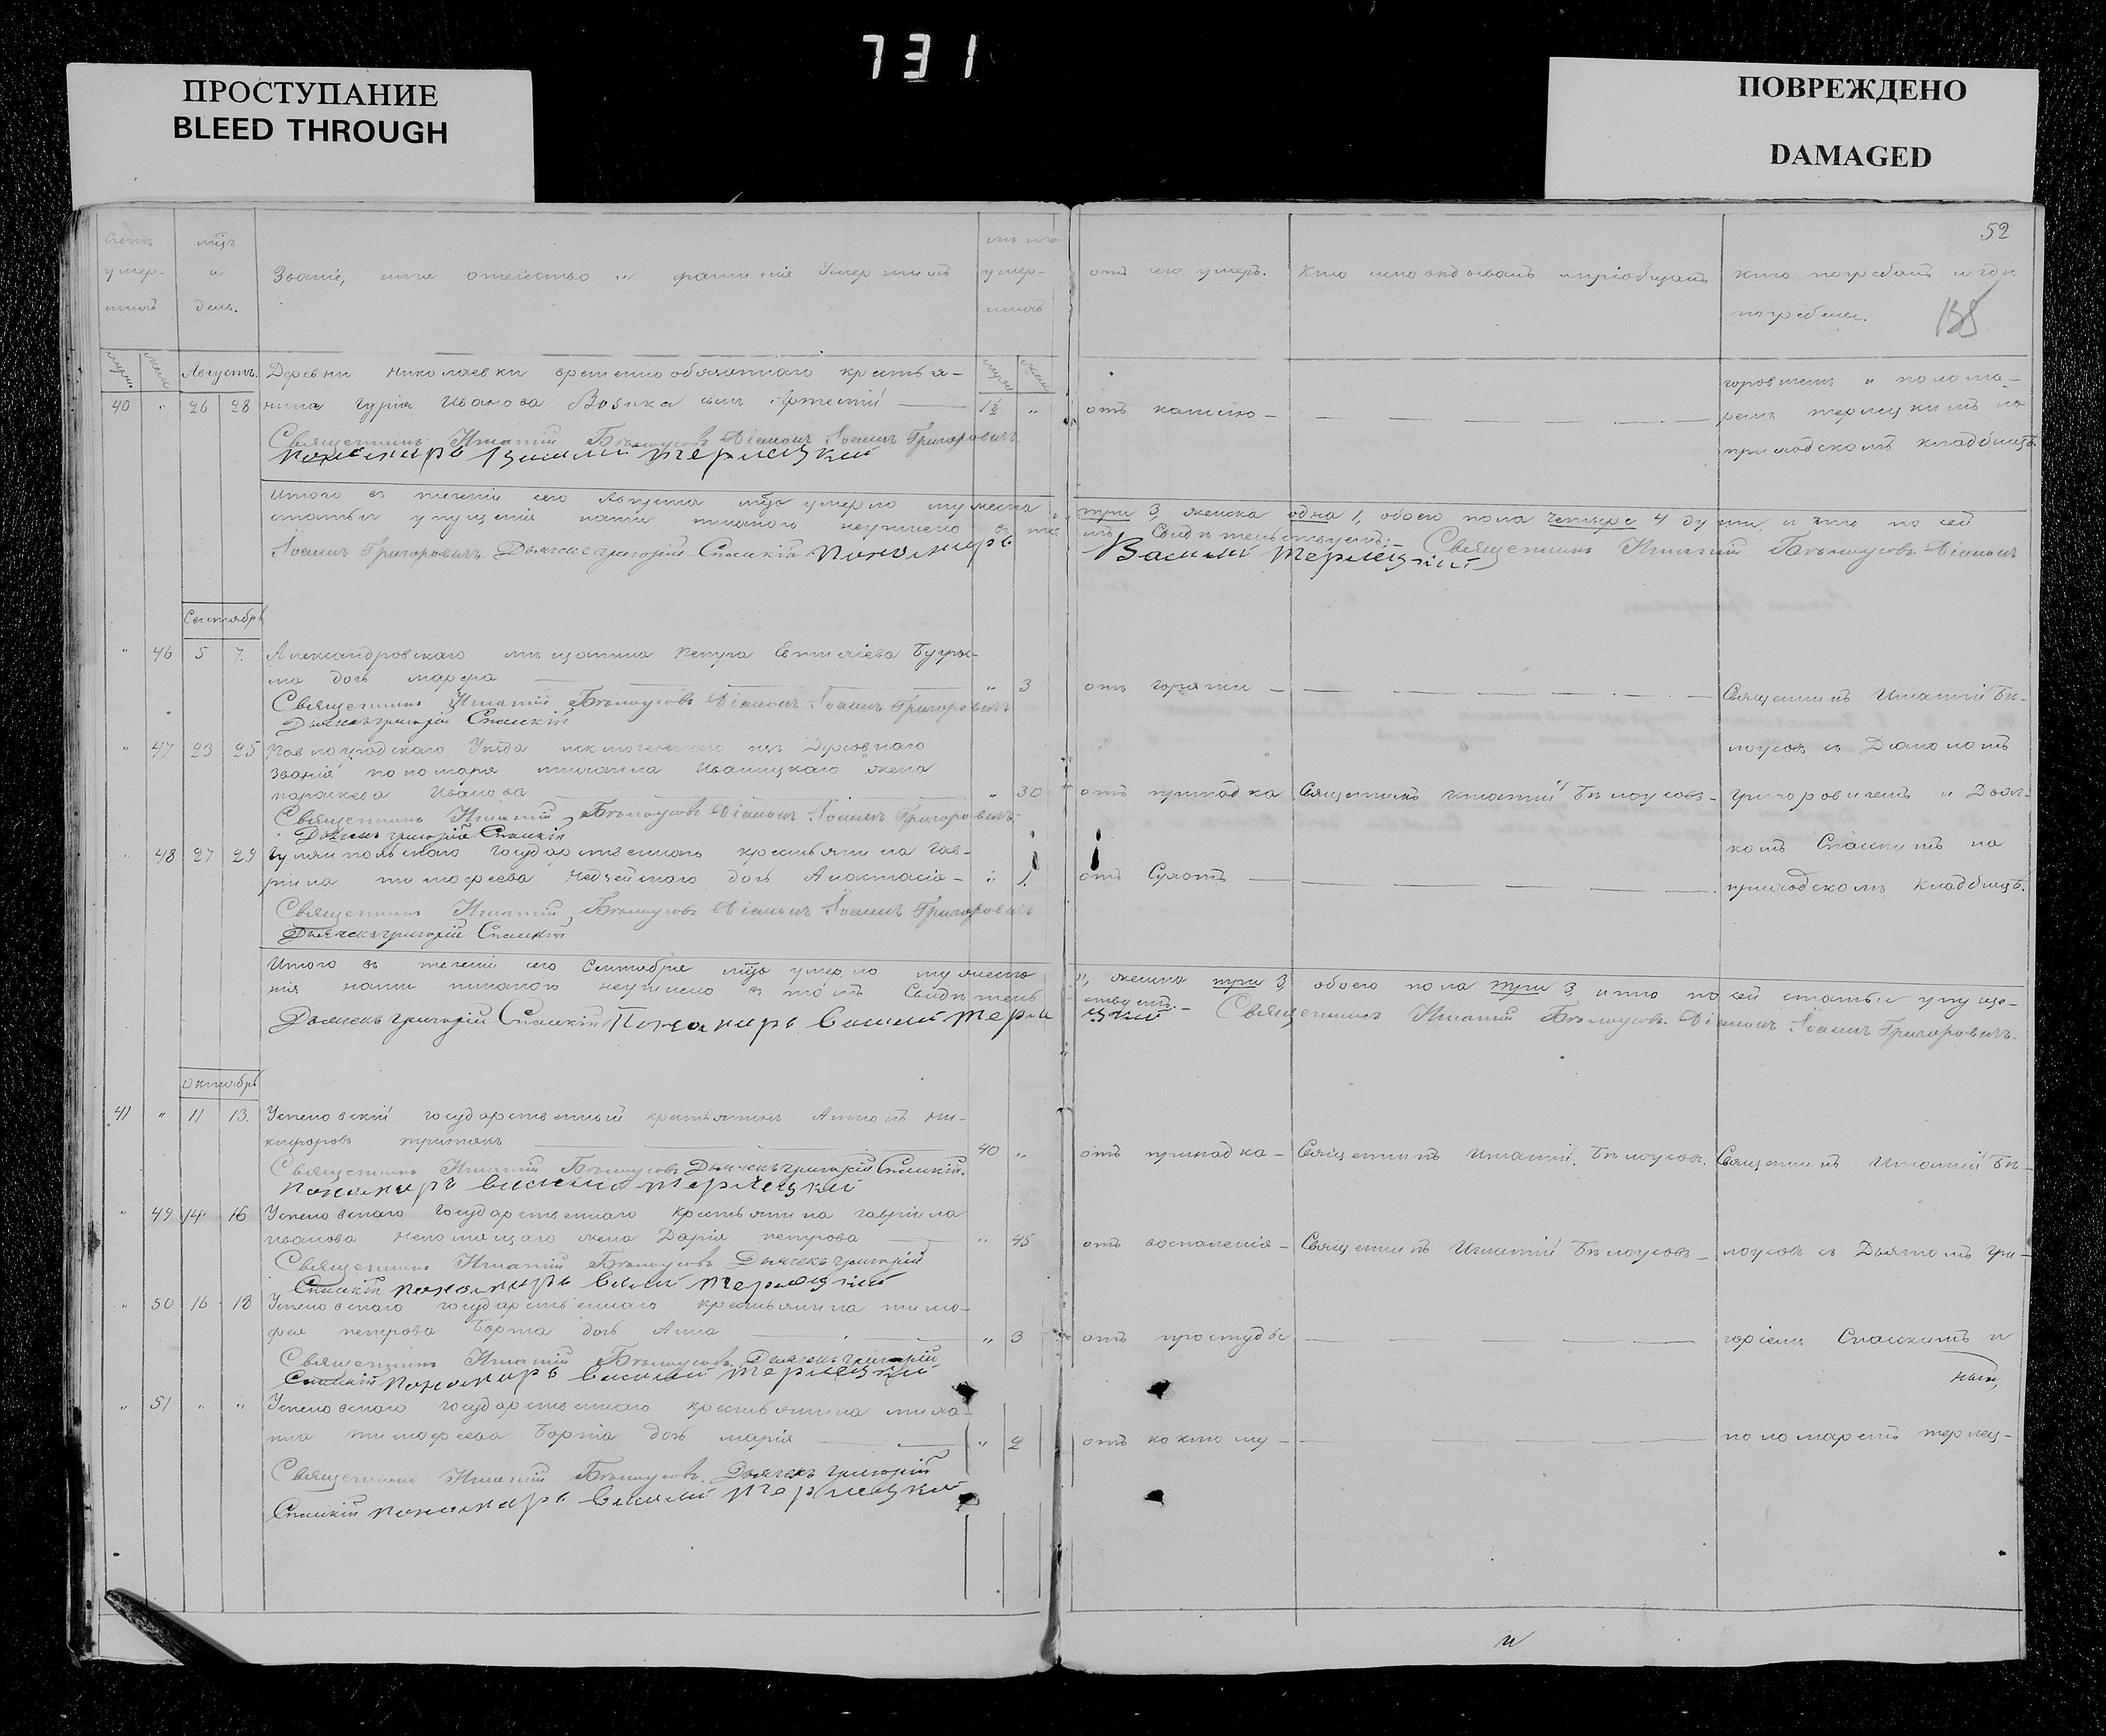 731
ПРОСТУПАНИЕ
BLEED THROUGH
ПОВРЕЖДЕНО
DAMAGED
52
Счетъ умер-шихъ
мцъ и день.
Званіе, имя отечество и фамилія умершихъ
умер-шихъ
отъ чего умеръ.
Кто исповѣдывалъ и пріобщалъ
Кто погребалъ и гдѣ погребены.
Августъ. Деревни Николаевки временнообязаннаго крестья-
40 " 26 28 нина Гурія Иванова сынъ Артемій 1½ " отъ кашлю
Священникъ Игнатій Бѣлоусовъ Діаконъ Іоаннъ Григоровичъ
Пономарь Василий Терлецкий
горовичемъ и понома-
ремъ Терлецкимъ на
приходскомъ кладбищѣ
Итого въ теченіи сего Августа мцѣ умерло мужеска три 3, женска одна 1, обоего пола четыре 4 души, и что по сей
статьи упущенія нами никакого неучинено въ томъ Свидѣтельствуемъ: Священникъ Игнатій Бѣлоусовъ Діаконъ
Іоаннъ Григоровичъ. Дьячекъ Григорій Спаскій Пономарь Василий Терлецкий
Сентябрь
" 46 5 7. Александровскаго мѣщанина Петра
дочь Марфа " 3 отъ горячки
Священникъ Игнатій Бѣлоусовъ Діаконъ Іоаннъ Григоровичъ
Дьячекъ Григорій Спаскій
Священникъ Игнатій Бѣ-
" 47 23 25 Павлоградскаго Уѣзда исключеннаго изъ Духовнаго
званія пономаря Иваницкаго жена
Параскева Иванова " 30 отъ припадка Священникъ Игнатій Бѣлоусовъ
Священникъ Игнатій Бѣлоусовъ Діаконъ Іоаннъ Григоровичъ
Дьячекъ Григорій Спаскій
лоусовъ съ Діакономъ
Григоровичемъ и Дьяч-
" 48 27 29 Гуляйпольскаго государственнаго крестьянина Гав-
ріила Тимофеева дочь Анастасія " 1. отъ Сухотъ
Священникъ Игнатій Бѣлоусовъ Діаконъ Іоаннъ Григоровичъ
Дьячекъ Григорій Спаскій
комъ Спаскимъ на
приходскомъ кладбищѣ.
Итого въ теченіи сего Сентября мцѣ умерло мужеска ", женска три 3 обоего пола три 3 и что по сей статьи упуще-
нія нами никакого неучинено въ томъ Свидѣтельствуемъ. Священникъ Игнатій Бѣлоусовъ. Діаконъ Іоаннъ Григоровичъ.
Дьячекъ Григорій Спаскій Пономарь Василий Терлецкий
Октябрь
41 " 11 13. Успеновскій государственный крестьянинъ Антонъ Ни-
кифоровъ 40 " отъ припадка Священникъ Игнатій Бѣлоусовъ. Священникъ Игнатій Бѣ-
Священникъ Игнатій Бѣлоусовъ Дьячекъ Григорій Спаскій.
Пономарь Василий Терлецкий
" 49 14 16 Успеновскаго государственнаго крестьянина Гавріила
Иванова жена Дарія Петрова " 45 отъ воспаленія Священникъ Игнатій Бѣлоусовъ лоусовъ съ Дьячкомъ Гри-
Священникъ Игнатій Бѣлоусовъ Дьячекъ Григорій
Спаскій Пономарь Василий Терлецкий
" 50 16 18 Успеновскаго государственнаго крестьянина Тимо-
фея Петрова дочь Анна " 3 отъ простуды горіемъ Спаскимъ и
Священникъ Игнатій Бѣлоусовъ. Дьячекъ Григорій
Спаскій Пономарь Василий Терлецкий
" 51 " " Успеновскаго государственнаго крестьянина Миха-
ила Тимофеева дочь Марія " 2 отъ коклюшу пономаремъ Терлец-
Священникъ Игнатій Бѣлоусовъ. Дьячекъ Григорій
Спаскій Пономарь Василий Терлецкий